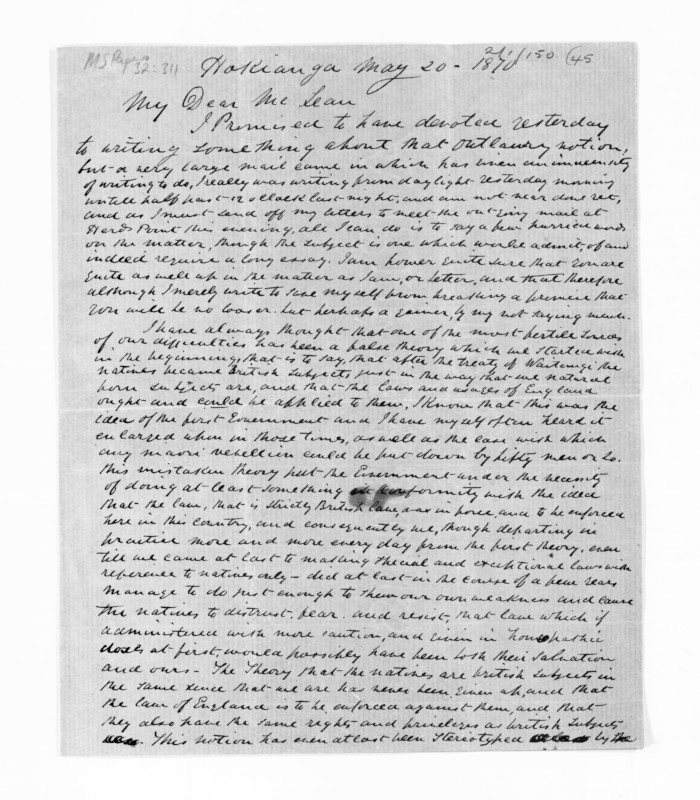 MS Papers 32:311
21/1/150 (45
Hokianga May 20 - 1870
My Dear McLean
I Promised to have devoted yesterday
to writing something about that outlawry notion,
but a very large mail came in which has given an immensity
of writing to do, I really was writing from daylight yesterday morning
untill half past or oclock last night, and am not near done yet,
and as I must send off my letters to meet the out going mail at
Herds Point this evening, all I can do is to say a few hurried words
on the matter, though the subject is one which would admit, of and
indeed require a long essay. I am however quite sure that you are
quite as well up in the matter as I am, or better, and that therefore
although I merely write to save myself from breaking a promise that
you will be no looser. but perhaps a gainer, by my not saying much.
I have always thought that one of the most fertile sources
of our difficulties has been a false theory which we started with
in the beginning, that is to say, that after the treaty of Waitangi the
natives became British subjects just in the way that we natural
born subjects are, and that the laws and usages of England
ought and could be applied to them, I know that this was the
idea of the first Government and I have myself often heard it
enlarged upon in those times, as well as the ease with which
any maori rebellion could be put down by fifty men or so.
this mistaken theory put the Government under the necessity
of doing at least something in conformity with the idea
that the law, that is strictly British law, was in force, and to be enforced
here in this country, and consequently we, though departing in
practice more and more every day from the first theory, even
till we came at last to making special and exceptional laws with
reference to natives only - did at last in the course of a few years
manage to do just enough to shew our own weakness and cause
the natives to distrust, fear. and resist, that law which if
administered with more caution, and given in homopathic
doses at first, would possibly have been both their salvation
and ours - The Theory that the natives are british subjects in
the same sence that we are has never been given up, and that
the law of England is to be enforced against them, and that
they also have the same rights and priviliges as british subjects
. This notion has even at last been stereotyped by the